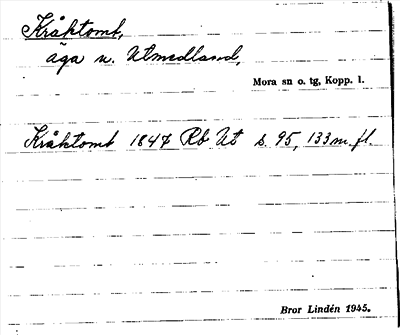 Kråktomt,
äga n. Utmedland,
Mora sn o. tg, Kopp. l.
Kråktomt 1847 Rb Ut s. 95, 133 m. fl.
Bror Lindén 1945.